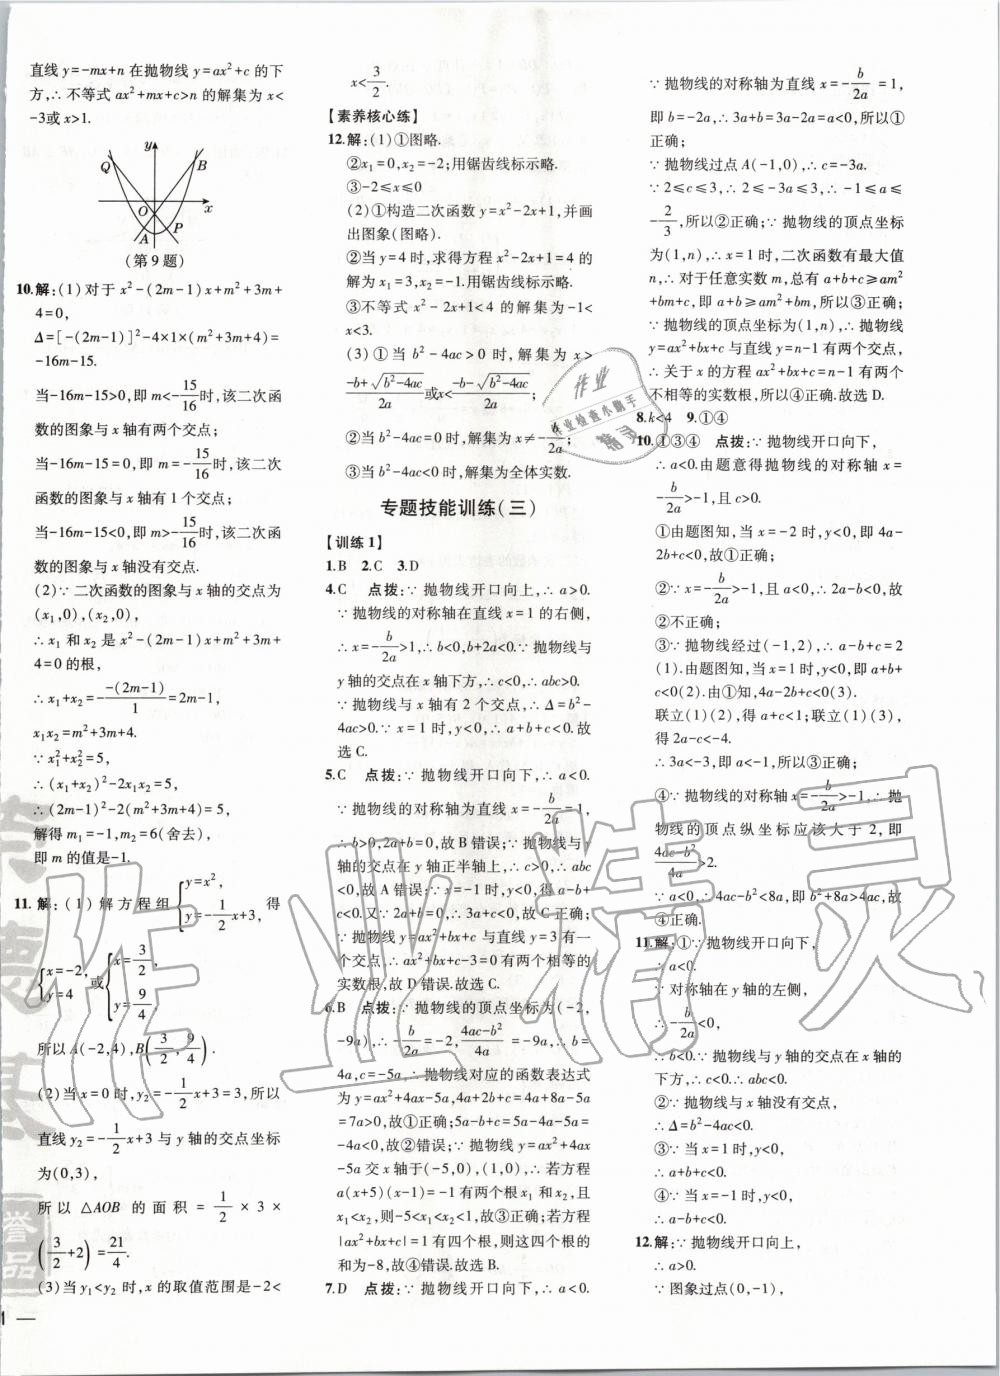 直线 y=-mx+n 在抛物线 y=ax²+c 的下
方,∴不等式 ax²+mx+c>n 的解集为 x<
-3或 x>1.
y
Q
B
O
x
A
P
(第 9 题)
10.解:(1)对于 x²-(2m-1)x+m²+3m+
4=0,
Δ=[-(2m-1)]²-4×1×(m²+3m+4)=
-16m-15.
当-16m-15>0,即 m<-15/16时,该二次函
数的图象与 x 轴有两个交点;
当-16m-15=0,即 m=-15/16时,该二次
函数的图象与 x 轴有 1 个交点;
当-16m-15<0,即 m>-15/16时,该二次函
数的图象与 x 轴没有交点.
(2)∵二次函数的图象与 x 轴的交点为
(x₁,0),(x₂,0),
∴x₁ 和 x₂ 是 x²-(2m-1)x+m²+3m+
4=0 的根,
∴x₁+x₂=- -(2m-1)/1=2m-1,
x₁x₂=m²+3m+4.
∵x₁²+x₂²=5,
∴(x₁+x₂)²-2x₁x₂=5,
∴(2m-1)²-2(m²+3m+4)=5,
解得 m₁=-1,m₂=6(舍去),
即 m 的值是-1.
11.解:(1)解方程组{y=x², y=-1/2x+3, 得
{x=-2, y=4 或{x=3/2, y=9/4,
所以 A(-2,4),B(3/2,9/4).
(2)当 x=0 时,y₂=-1/2x+3=3,所以
直线 y₂=-1/2x+3 与 y 轴的交点坐标
为(0,3),
所以 △AOB 的面积=1/2×3×
(3/2+2)=21/4.
(3)当 y₁<y₂ 时,x 的取值范围是-2<
x<3/2.
【素养核心练】
12.解:(1)①图略.
②x₁=0,x₂=-2;用锯齿线标示略.
③-2≤x≤0
(2)①构造二次函数 y=x²-2x+1,并画
出图象(图略).
②当 y=4 时,求得方程 x²-2x+1=4 的
解为 x₁=3,x₂=-1.用锯齿线标示略.
③不等式 x²-2x+1<4 的解集为-1<
x<3.
(3)①当 b²-4ac>0 时,解集为 x>
(-b+√(b²-4ac))/2a 或x<(-b-√(b²-4ac))/2a;
②当 b²-4ac=0 时,解集为 x≠-b/2a;
③当 b²-4ac<0 时,解集为全体实数.
专题技能训练(三)
【训练 1】
1.B 2.C 3.D
4.C 点拨:∵抛物线开口向上,∴a>0.
∵抛物线的对称轴在直线 x=1 的右侧,
∴x=-b/2a>1,∴b<0,b+2a<0.∵抛物线与
y 轴的交点在 x 轴下方,∴c<0,∴abc>0.
∵抛物线与 x 轴有 2 个交点,∴Δ=b²-
4ac>0.∵x=1 时,y<0,∴a+b+c<0.故
选 C.
5.C 点拨:∵抛物线开口向下,∴a<0.
∵抛物线的对称轴为直线 x=-b/2a=1,
∴b>0,2a+b=0,故 B 错误;∵抛物线与 y
轴的交点在 y 轴正半轴上,∴c>0,∴abc
<0,故 A 错误;∵x=-1 时,y<0,得 a-b+
c<0.又∵2a+b=0,∴3a+c<0,故 C 正确;∵
抛物线 y=ax²+bx+c 与直线 y=3 有一
个交点,∴ax²+bx+c-3=0 有两个相等的
实数根,故 D 错误.故选 C.
6.B 点拨:∵抛物线的顶点坐标为(-2,
-9a),∴-b/2a=-2,(4ac-b²)/4a=-9a,∴b=
4a,c=-5a,∴抛物线对应的函数表达式
为 y=ax²+4ax-5a,∴4a+2b+c=4a+8a-5a
=7a>0,故①正确;5a-b+c=5a-4a-5a=
-4a<0,故②错误;∵抛物线 y=ax²+4ax
-5a 交 x 轴于(-5,0),(1,0),∴若方程
a(x+5)(x-1)=-1 有两个根 x₁ 和 x₂,且
x₁<x₂,则-5<x₁<x₂<1,故③正确;若方程
|ax²+bx+c|=1 有四个根,则这四个根的
和为-8,故④错误.故选 B.
7.D 点拨:∵抛物线开口向下,∴a<0.
∵抛物线的对称轴为直线 x=-b/2a=1,
即 b=-2a,∴3a+b=3a-2a=a<0,所以①
正确;
∵抛物线过点 A(-1,0),∴c=-3a.
∵2≤c≤3,∴2≤-3a≤3,∴-1≤a≤
-2/3,所以②正确;∵抛物线的顶点坐标
为(1,n),∴x=1 时,二次函数有最大值
n,∴对于任意实数 m,总有 a+b+c≥am²
+bm+c,即 a+b≥am²+bm,所以③正确;
∵抛物线的顶点坐标为(1,n),∴抛物线
y=ax²+bx+c 与直线 y=n-1 有两个交点,
∴关于 x 的方程 ax²+bx+c=n-1 有两个
不相等的实数根,所以④正确.故选 D.
8.k<4 9.①④
10.①③④ 点拨:∵抛物线开口向下,
∴a<0.由题意得抛物线的对称轴 x=
-b/2a>-1,且 c>0.
①由题图知,当 x=-2 时,y<0,即 4a-
2b+c<0,故①正确;
②∵x=-b/2a>-1,且 a<0,∴2a-b<0,故
②不正确;
③∵抛物线经过(-1,2),∴a-b+c=2
(1).由题图知,当 x=1 时,y<0,即 a+b+
c<0(2).由①知,4a-2b+c<0(3).
联立(1)(2),得 a+c<1;联立(1)(3),
得 2a-c<-4.
∴3a<-3,即 a<-1,所以③正确;
④∵抛物线的对称轴 x=-b/2a>-1,∴抛
物线的顶点纵坐标应该大于 2,即
(4ac-b²)/4a>2.
∵a<0,∴4ac-b²<8a,即 b²+8a>4ac,故
④正确.
11.解:①∵抛物线开口向下,
∴a<0.
∵对称轴在 y 轴的左侧,
∴x=-b/2a<0,
∴b<0.∵抛物线与 y 轴的交点在 x 轴的
下方,∴c<0,∴abc<0.
②∵抛物线与 x 轴没有交点,
∴Δ=b²-4ac<0.
③∵当 x=1 时,y<0,
∴a+b+c<0.
④∵当 x=-1 时,y<0,
∴a-b+c<0.
12.解:∵抛物线开口向上,
∴a>0.
∵图象过点(0,-1),
作业
作业检查小助手
精灵
作业精灵